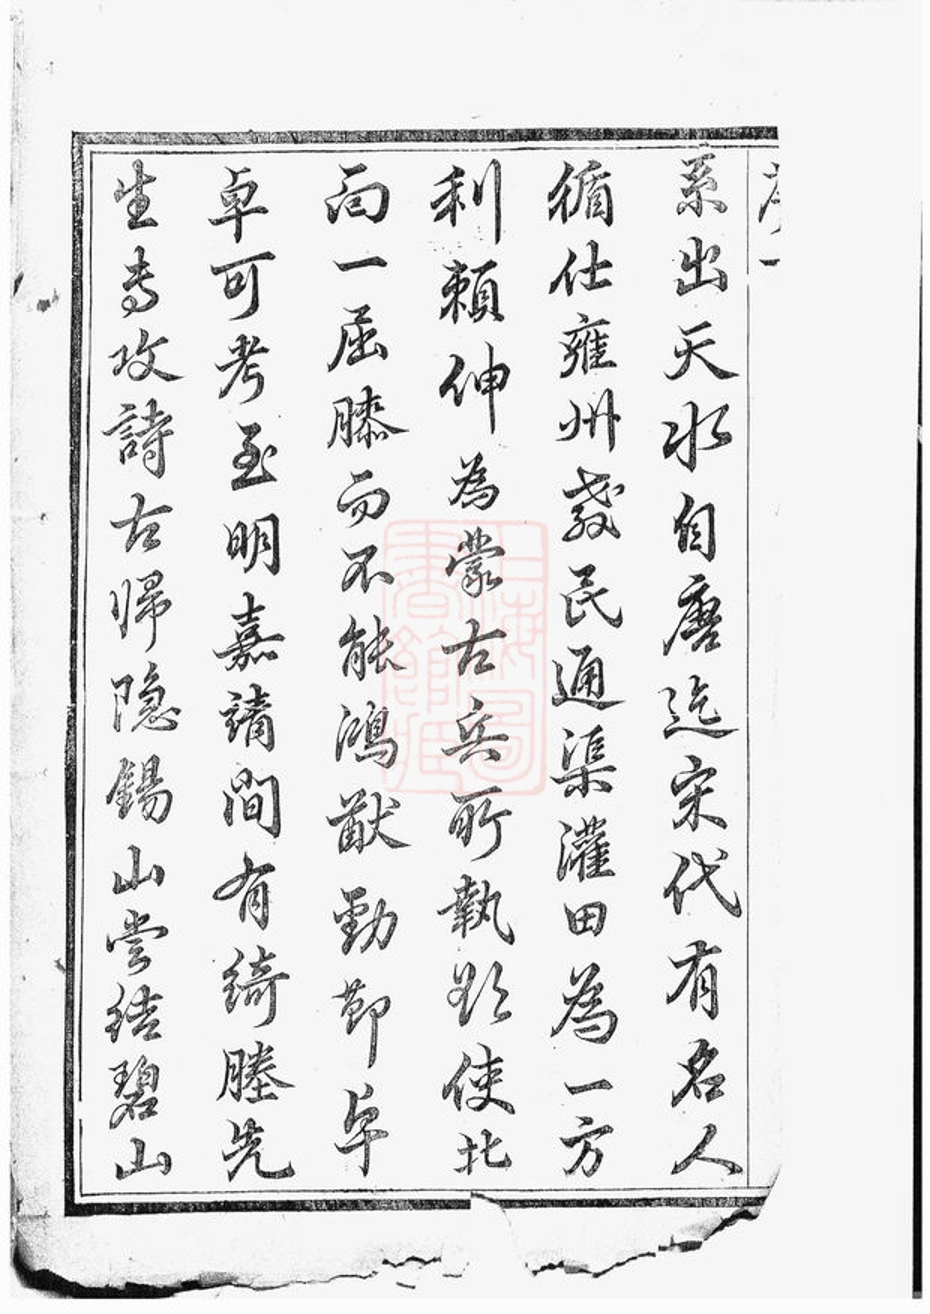 序一
系出天水自唐迄宋代有名人
循仕雍州教民通渠灌田為一方
利賴伸為蒙古兵所執欲使北
向一屈膝而不能鴻猷勁節卓
卓可考至明嘉靖間有綺塍先
生專攻詩古帰隐錫山嘗结碧山
上海圖書館藏